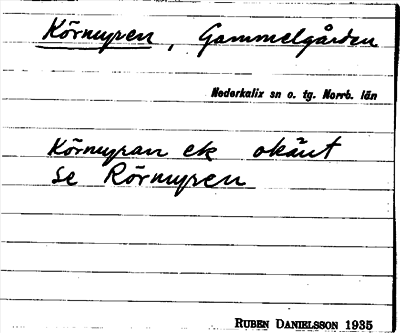 Körmyren, Gammelgården
Nederkalix sn o. tg. Norrb. län
Körmyran ek okänt
se Rörmyren
RUBEN DANIELSSON 1935